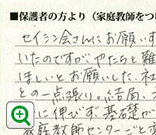 ■保護者の方より（家庭教師をつ
セイシン会さんにお願いす
いたのですが、やたらと難
ほしいとお願いした。社
との一点張り。結局、
に伸びず、基礎が
教師センターご